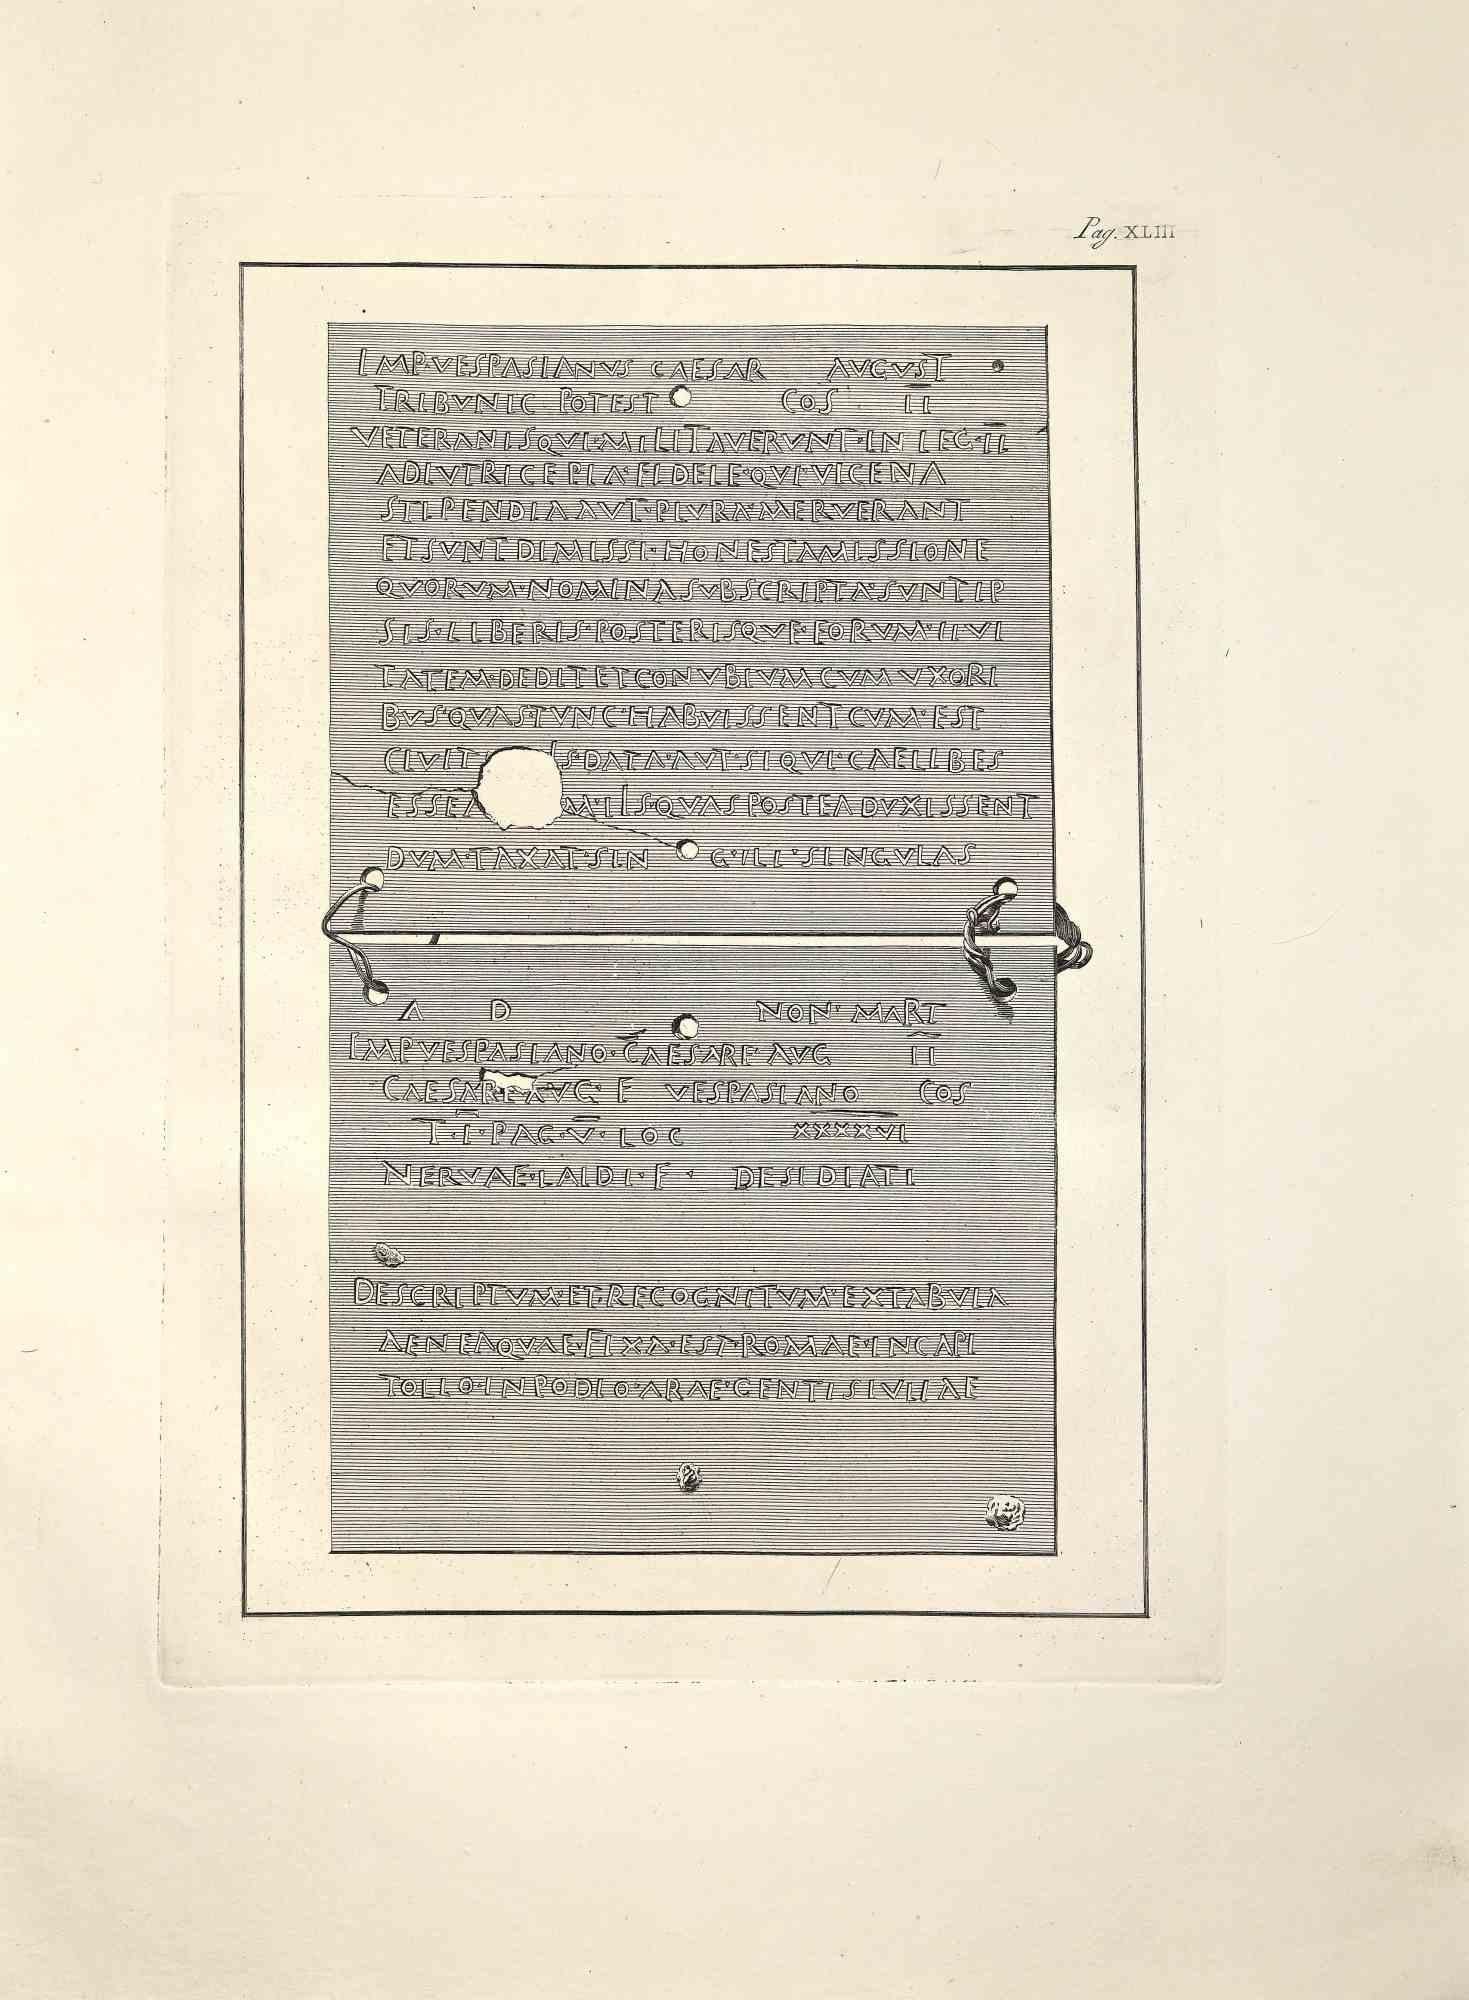 Pag. XLIII
IMP·VESPASIANVS CAESAR AVGVST
TRIBVNIC POTEST COS II
VETERANISQVI·MILITAVERVNT·IN LEG·II
ADIVTRICE PIA·FIDELE·QVI·VICENA
STIPENDIA AVT·PLVRA·MERVERANT
ETSVNTDIMISSI·HONESTAMISSIONE
QVORVM·NOMINASVBSCRIPTA·SVNTIP
SIS·LIBERIS·POSTERISQVE·EORVM·IIVI
TATEM·DEDITETCONVBIVMCVMVXORI
BVS·QVAS·TVNC·HABVISSENTCVM·EST
CIVIT IS·DATA·AVT·SIQVI·CAELIBES
ESSEA M·IIS·QVASPOSTEADVXISSENT
DVM·TAXAT·SIN G·ILI·SINGVLAS
A D NON·MART
IMP·VESPASIANO·CAESARE·AVG II
CAESARE·AVG·F VESPASIANO COS
T·I·PAG·V·LOC XXXXVI
NERVAE·LAIDI·F· DESIDIATI
DESCRIPTVM·ET·RECOGNITVM·EXTABVLA
AENEAQVAE·FIXA·EST·ROMAE·INCAPI
TOLIO·INPODIO·ARAE·GENTISIVLIAE